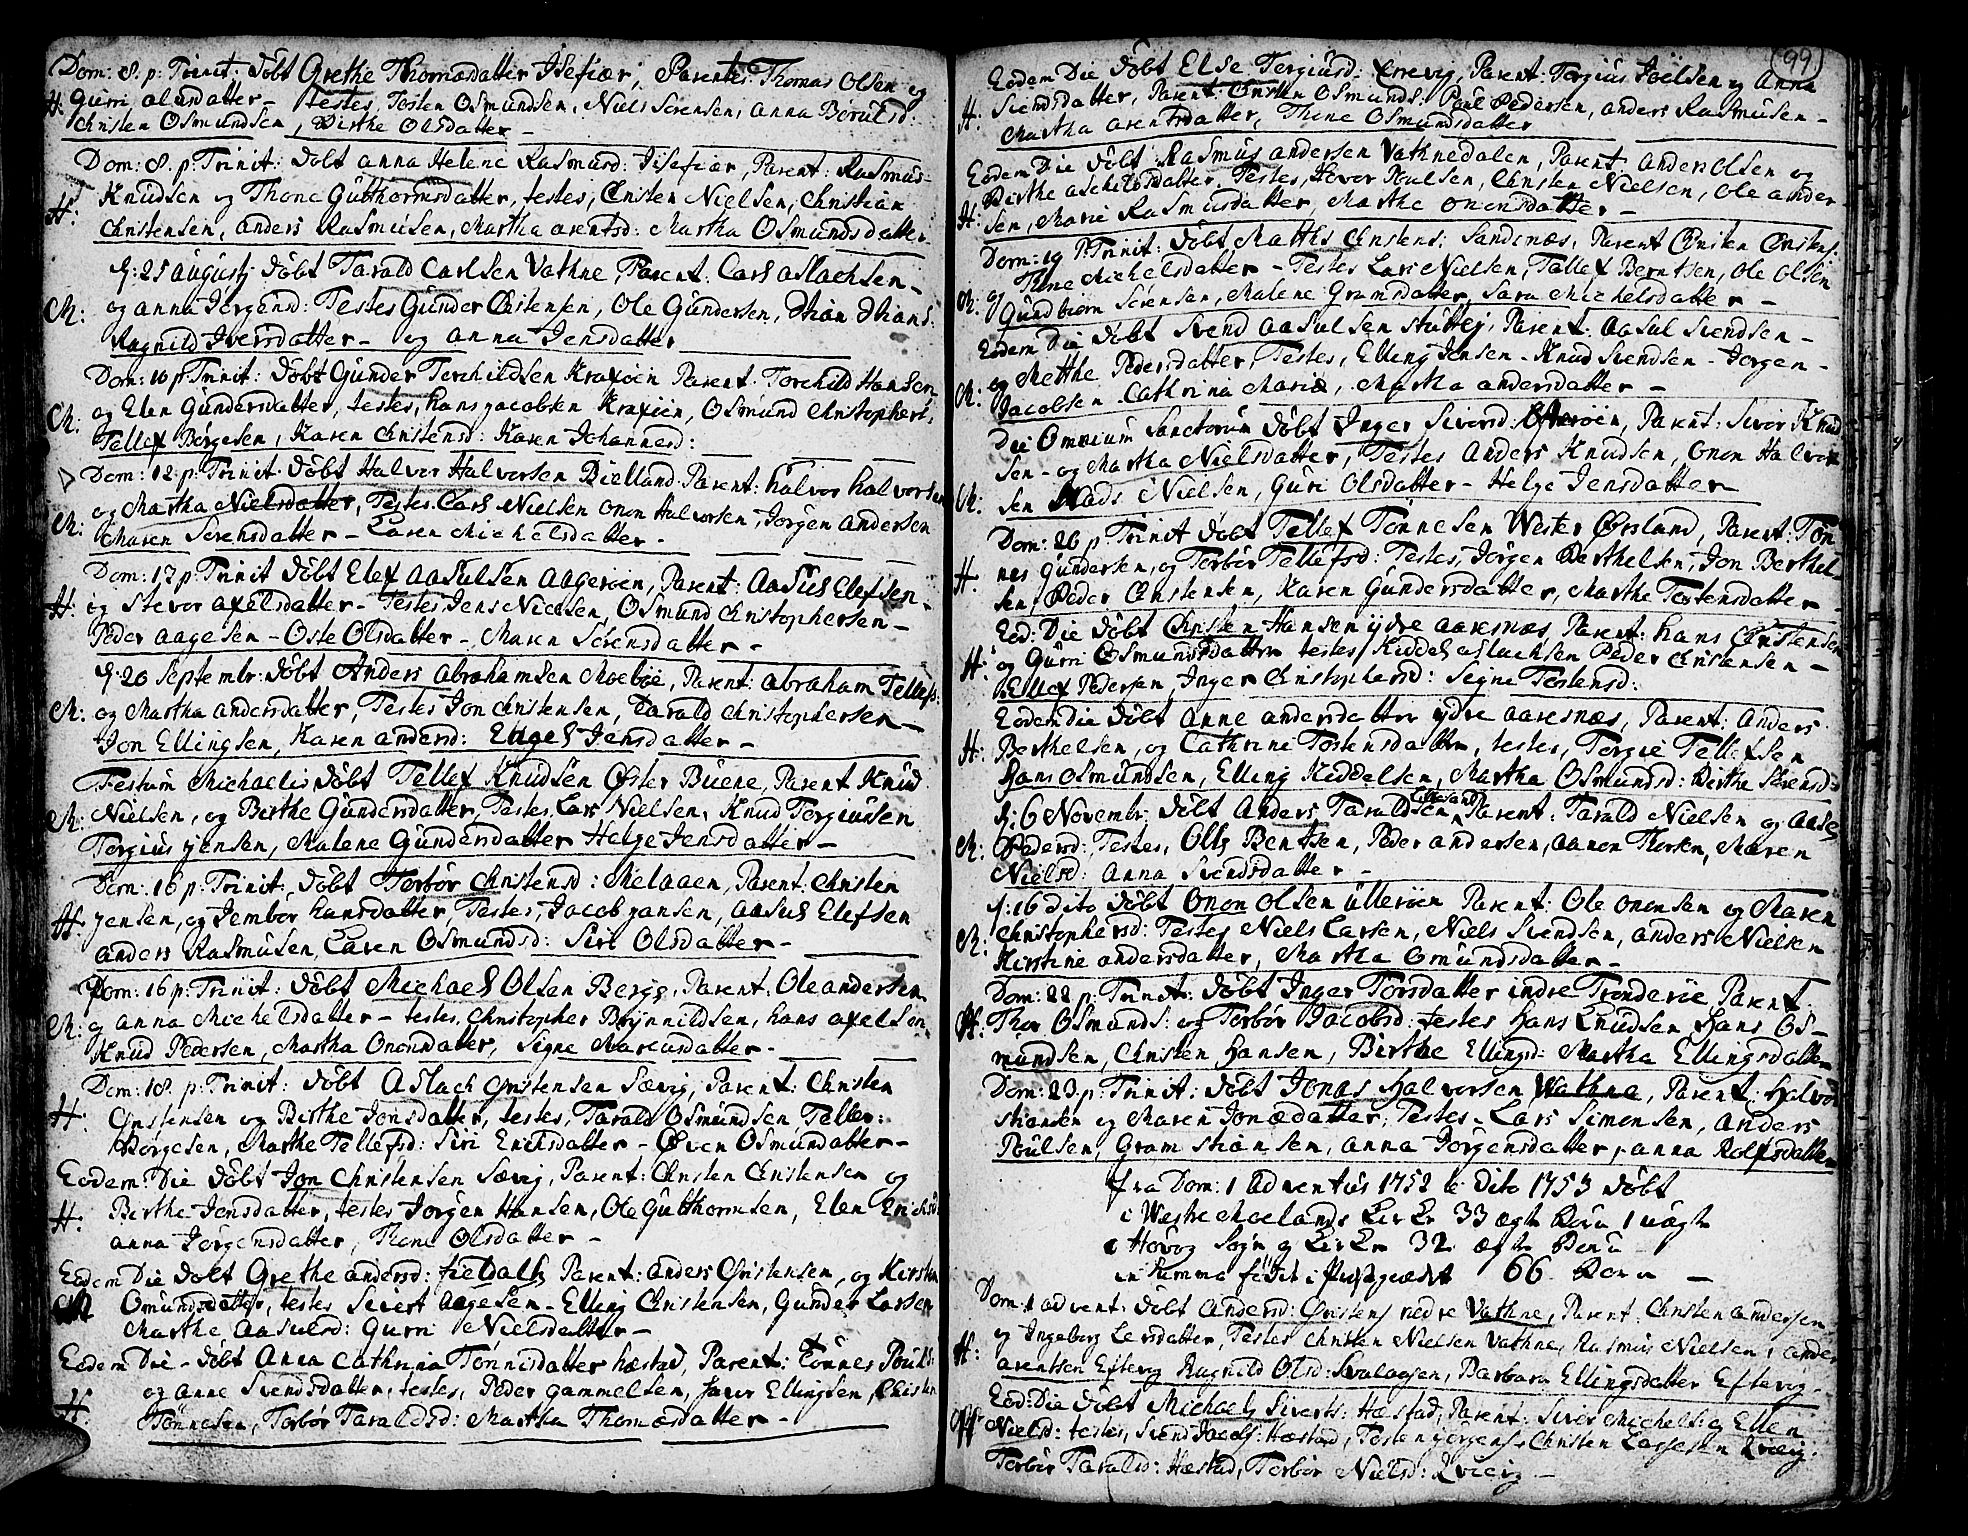 Dom: 8. p: Trinit: döbt Grethe Thomædatter Isefiær, Parentes: Thomas Olsen og
H. Gurri olusdatter – testes, Testen Osmundsen, Niels Sörensen, Anna Börulsd:
Christen Osmundsen, Birthe Olsdatter –
Dom: 8. p: Trinit: döbt anna Helene Rasmusd: Iisefiær, Parent: Rasmus
H: Knudsen og Thone Gutthormsdatter, testes, Christen Nielsen, Christian
Christensen, anders Rasmusen, Martha arentsd: Martha Osmundsdatter
d: 25 augustj döbt Tarald Carlsen Vathne, Parent: Carl aslachsen –
M: og anna Jörgensd: Testes Gunder Christensen, Ole Gundersen, Stian Stians:
Ragnild Iversdatter – og anna Jensdatter
Dom: 10 p Trinit: döbt Gunder Terchildsen Kraxöen Parent: Torchild Hansen
M: og Elen Gundersdatter, testes, hans jacobsen Kraxöen, Osmund Christophers:
Tellef Börgesen, Karen Christensd: Karen Johannesd:
Dom: 12 p: Trinit: döbt Halvor Halvorsen Bielland Parent: halvor halvorsen
M: og Martha Nielsdatter, Testes. Lars Nielsen onon Halvorsen, Jörgen andersen
Maren Sörensdatter – Karen Michelsdatter –
Dom: 17 p: Trinit döbt Elef Aasulsen aageröen, Parent: Aasul Elefsen –
H. og Stevor axelsdatter – Testes, Jens Nielsen, Osmund Christophersen –
Peder aagesen – Oste Olsdatter – Maren Sörensdatter –
d. 20 Septembr: döbt Anders abrahamsen Moeböe, Parent: abraham Tellefs:
M: og Martha andersdatter, Testes Jon Christensen, Tarald Christophersen –
Jon Ellingsen, Karen andersd: Engel Jensdatter –
Festum Michaelis döbt Tellef Knudsen Öster Buene, Parent Knud
M: Nielsen, og Berthe Gundersdatter, Testes, Lars Nielsen, Knud Torgiusen
Torgius jensen, Malene Gundersdatter Helge Jensdatter –
Dom: 16 p: Trinit: döbt Torbör Christensd: Melaaen, Parent: Christen
H jensen, og Jembor hansdatter, Testes, Jacob jansen, aasul Elefsen
anders Rasmusen, Karen Osmundsd: Siri Olsdatter –
Dom: 16 p: Trinit: döbt Michael Olsen Berge, Parent: Ole andersen
M: og anna Michelsdatter – testes, Christopher Brÿnnildsen, hans axelsen
Knud Pedersen, Martha Ononsdatter, Signe Marcusdatter –
Dom: 18. p: Trinit: döbt Aslach Christensen Sævig, Parent: Christen
H. Christensen og Birthe Jonsdatter, testes, Tarald Osmundsen, Tellef:
Börgesen, Marthe Tellefsd: Siri Erichsdatter – Even Osmundsdatter –
Eodem Die döbt Jon Christensen Sævig, Parent: Christen Christensen og
H: Birthe Jonsdatter, testes Jörgen Hansen, Ole Gutthormsen, Elen Erichsd:
anna Jörgensdatter, Thone Olsdatter –
Eodem Die döbt Grethe andersd: fieldall, Parent: anders Christensen, og Kirsten
M Omundsdatter, testes Sivert aagesen – Elling Christensen, Gunder Larsen
Marthe aasulsd: Gurri Nielsdatter –
Eodem Die – döbt Anna Cathrina Tönnisdatter hæstad, Parent: Tönnes Poulss:
H. og anne Svendsdatter, testes, Peder gammelsen, Iver Ellingsen, Christen
Tönnesen, Torbör Taraldsd: Martha Thomædatter –
99
Eodem Die döbt Else Tergiusd: Errevig, Parent: Torgius Joelsen og Anna
H. Svendsdatter, Parent: Christen Osmunds: Poul Pedersen, anders Rasmusen –
Martha arentsdatter, Thone Osmundsdatter
Eodem Die döbt Rasmus andersen Vathnedalen, Parent: anders Olsen og
H. Birthe aschildsdatter, Testes, Hovor Poulsen, Christen Nielsen, Ole ander
sen, Marie Rasmusdatter, Marthe ononsdatter –
Dom: 19 p. Trinit: döbt Matths Christens: Sandnæs, Parent Christen Christens:
M. og Thone Michelsdatter – Testes Lars Nielsen, Tellef Berntsen, Ole Olsen
Gundbiörn Sörensen, Malene Gramsdatter, Sara Michelsdatter –
Eodem Die döbt Svend Aasulsen Stuttej, Parent: Aasul Svendsen –
M. og Mette Pedersdatter, Testes, Elling Jensen – Knud Svendsen – Jörgen –
Jacobsen Cathrina Maria, Martha andersdatter –
Die Omnium Sanctorum döbt Inger Siversd: Österöen, Parent: Siver Knud
M. sen – og Martha Nielsdatter, Testes Anders Knudsen, Onon Halvor
sen Mads Nielsen, Guri Olsdatter – Helge Jensdatter
Dom: 20 p: Trinit döbt Tellef Tönnesen Wester Öxlund, Parent: Tön
H. nes Gundersen, og Torbör Tellefsd: Testes, Jörgen Berthelsen, Jon Berthel
sen, Peder Christensen, Karen Gundersdatter, Marthe Tostensdatter –
Eod: Die döbt Christen Hansen ydre aaresnæs, Parent: hans Christensen
H: og Gurri Osmundsdatter testes, Kiddel aslachsen Peder Christensen –
Ellef Pedersen, Inger Christophersd: Signe Tostensd:
Eodem Die döbt anne andersdatter ydre aaresnæs, Parent: anders
H: Berthelsen, og Cathrine Tostensdatter, testes, Torgie Tellefsen
hans Osmundsen, Elling Kiddelsen, Martha Osmundsd: Birthe Svendsd:
d: 6 Novembr: döbt Anders Taraldsen Lillesand, Parent: Tarald Nielsen og aase
M. Pedersd: Testes, Olle Bentsen, Peder andersen, aanon Thorsen, Maren
Nielsd: anna Svendsdatter –
d: 16 dito döbt Onon Olsen ulleröen Parent: Ole ononsen og Maren
M. Christophersd: Testes Niels Larsen, Niels Svendsen, anders Nielsen
Kirstine andersdatter, Martha omundsdatter –
Dom: 22 p: Trinit: döbt Inger Torsdatter indre Tronderöe Parent:
H. Thor Osmunds: og Torbör Jacobsd: testes Hans Knudsen, Hans Os–
mundsen, Christen hansen, Birthe Ellingsd: Martha Ellingsdatter
Dom: 23 p: Trinit: döbt Jonas Halvorsen Wathne, Parent: Halvor
Stiansen og Maren Jonædatter, Testes – Lars Simonsen, Anders
Poulsen, Gram Stiansen, anna Jörgensdatter, anna Rolfsdatter
fra Dom: 1 adventus 1752 til Dito 1753 döbt
i Westre Moelands Kirke 33 ægte Börn 1 uægte
i Hövog Sogn og Kirke 32 ægte Börn
in Summa födt i Præstegieldet 66 Börn –
Dom: 1 advent: döbt Andersd: Christens nedre Vathne, Parent: Christen andersen
H: og Ingeborg Larsdatter, Testes Christen Nielsen Vathne, Rasmus Nielsen, ander
arentsen Eftevig Ragnild Olsd: Svalaasen, Barbara Ellingsdatter Eftevig –
Eod: Die döbt Michael Siverts: Hæstad, Parent: Siver Michels: og Ellen
H Nielsd: testes, Svend Jacobs: Hæstad, Testen jörgens: Christen Lassesen Qvævig:
Torbör Taraldsd: Hæstad, Torbör Nielsd: Qvævig –